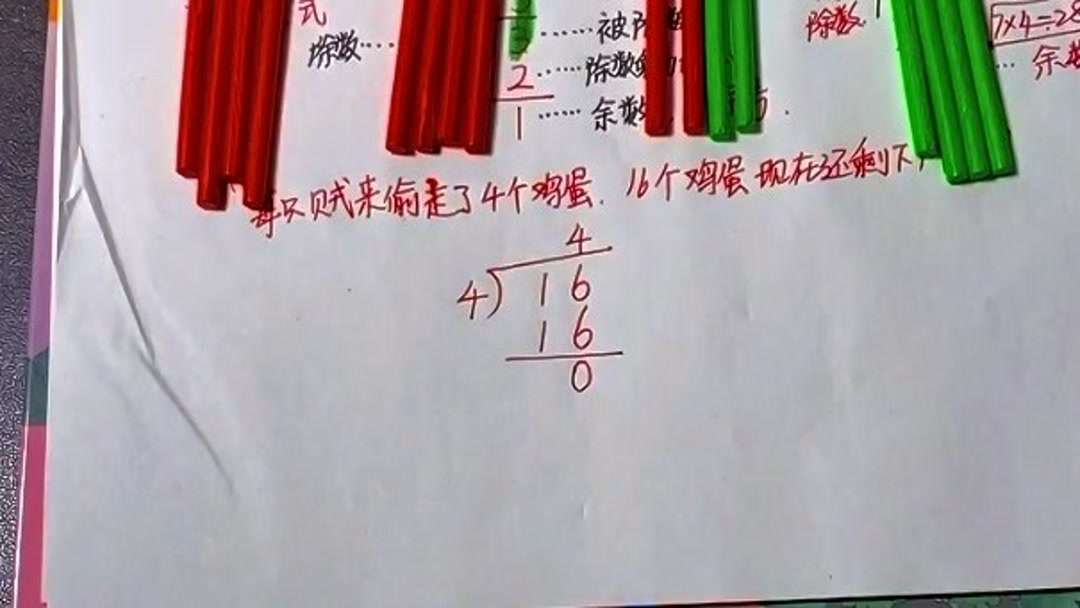 式
除数……
……被除
2……除数
1……余数
除数
7×4=28
…余数
每只贼来偷走了4个鸡蛋.16个鸡蛋现在还剩下
4
4)16
16
0